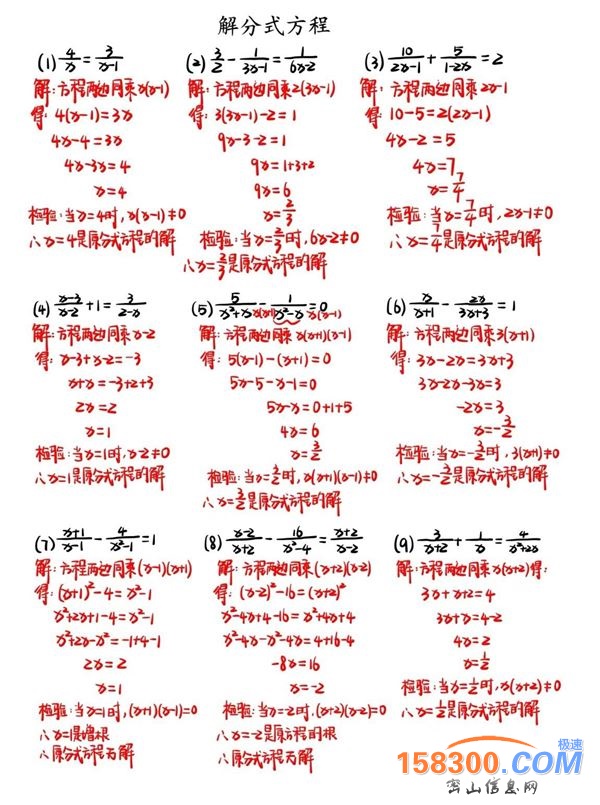 解分式方程
(1) 4/x = 3/(x-1)
解:方程两边同乘x(x-1)
得: 4(x-1)=3x
4x-4=3x
4x-3x=4
x=4
检验:当x=4时,x(x-1)≠0
∴x=4是原分式方程的解
(2) 3/2 - 1/(3x-1) = 1/(6x-2)
解:方程两边同乘2(3x-1)
得: 3(3x-1)-2=1
9x-3-2=1
9x=1+3+2
9x=6
x=2/3
检验:当x=2/3时,6x-2≠0
∴x=2/3是原分式方程的解
(3) 10/(2x-1) + 5/(1-2x) = 2
解:方程两边同乘2x-1
得: 10-5=2(2x-1)
4x-2=5
4x=7
x=7/4
检验:当x=7/4时,2x-1≠0
∴x=7/4是原分式方程的解
(4) (x-3)/(x-2) + 1 = 3/(2-x)
解:方程两边同乘x-2
得: x-3+x-2=-3
x+x=-3+2+3
2x=2
x=1
检验:当x=1时,x-2≠0
∴x=1是原分式方程的解
(5) 5/(x²+x) x(x+1) - 1/(x²-x) x(x-1) =0
解:方程两边同乘x(x+1)(x-1)
得: 5(x-1)-(x+1)=0
5x-5-x-1=0
5x-x=0+1+5
4x=6
x=3/2
检验:当x=3/2时,x(x+1)(x-1)≠0
∴x=3/2是原分式方程的解
(6) x/(x+1) - 2x/(3x+3) = 1
解:方程两边同乘3(x+1)
得: 3x-2x=3x+3
3x-2x-3x=3
-2x=3
x=-3/2
检验:当x=-3/2时,3(x+1)≠0
∴x=-3/2是原分式方程的解
(7) (x+1)/(x-1) - 4/(x²-1) = 1
解:方程两边同乘(x-1)(x+1)
得: (x+1)²-4=x²-1
x²+2x+1-4=x²-1
x²+2x-x²=-1+4-1
2x=2
x=1
检验:当x=1时,(x+1)(x-1)=0
∴x=1是增根
∴原分式方程无解
(8) (x-2)/(x+2) - 16/(x²-4) = (x+2)/(x-2)
解:方程两边同乘(x+2)(x-2)
得: (x-2)²-16=(x+2)²
x²-4x+4-16=x²+4x+4
x²-4x-x²-4x=4+16-4
-8x=16
x=-2
检验:当x=-2时.(x+2)(x-2)=0
∴x=-2是原方程的根
∴原分式方程无解
(9) 3/(x+2) + 1/x = 4/(x²+2x)
解:方程两边同乘x(x+2)得:
3x+x+2=4
3x+x=4-2
4x=2
x=1/2
检验:当x=1/2时,x(x+2)≠0
∴x=1/2是原分式方程的解
极速
158300.COM
密山信息网